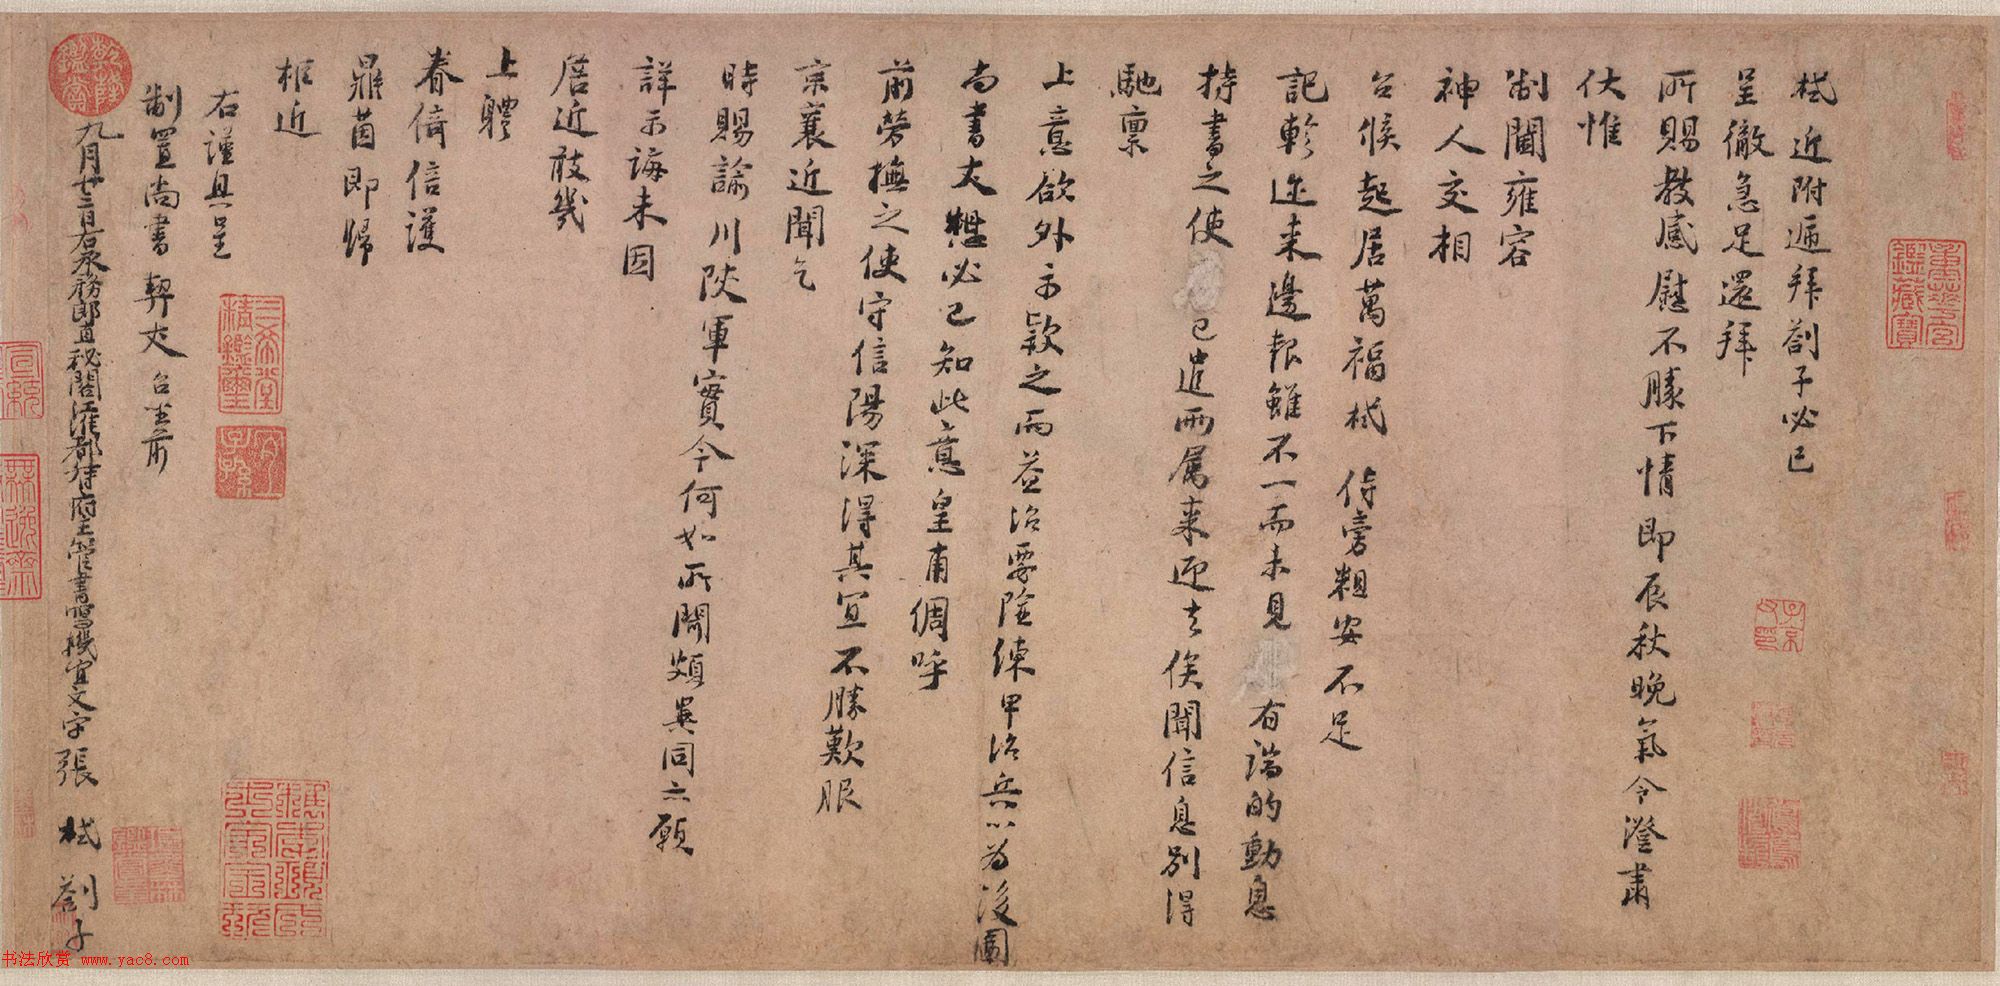 栻近附遞拜劄子必已
呈徹急足還拜
所賜教感慰不勝下情即辰秋晚氣令澄肅
伏惟
制閫雍容
神人交相
台候起居萬福栻侍旁粗安不足
記軫邇来邊報雖不一而未見有端的動息
持書之使已遣兩屬来迎去俟聞信息別得
馳禀
上意欲外示欵之而益治要險練甲治兵以為後圖
尚書丈想必已知此意皇甫倜呼
前勞撫之使守信陽深得其宜不勝歎服
京襄近聞乞
時賜諭川陝軍實今何如所聞頗異同亦願
詳示誨未因
居近敢幾
上體
眷倚倍護
鼎茵即歸
柜近
右謹具呈
制置尚書契丈台坐前
九月廿三日右承務郎直祕閣江淮都督府主管書寫機宜文字張栻劄子
乾隆鑑賞
三希堂精鑑璽
宜子孫
重華宮鑑藏寶
书法欣赏 www.yac8.com